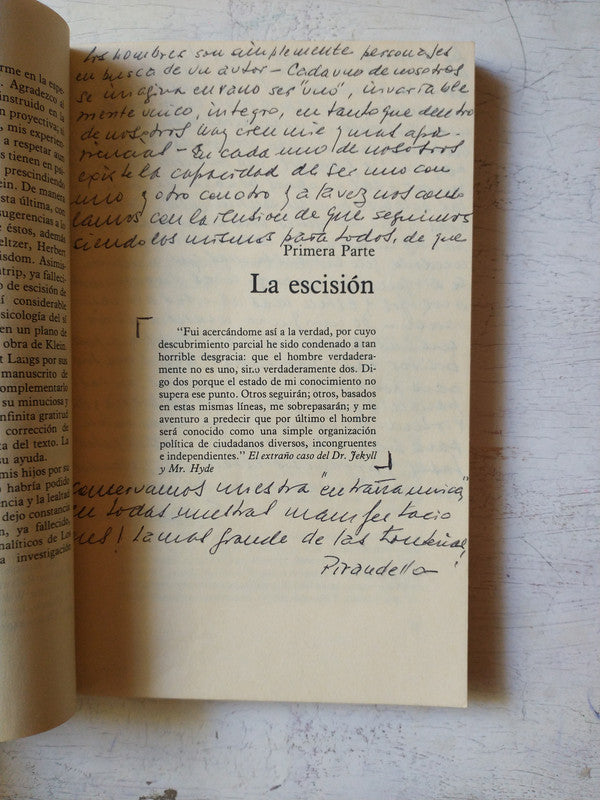 rme en la expe-
. Agradezco al
nstruido en la
n proyectiva, si
, mis experien-
a respetar aun
s tienen en psi-
prescindiendo
ein. De manera
sta última, con
sugerencias a lo
e éstos, además
eltzer, Herbert
isdom. Asimis-
trip, ya falleci-
de escisión de
sí considerable
psicología del sí
en un plano de
obra de Klein.
t Langs por sus
manuscrito de
complementario
su minuciosa y
nfinita gratitud
corrección de
ta del texto. La
su ayuda.
mis hijos por su
habría podido
encia y la lealtad
dejo constancia
n, ya fallecido,
nalíticos de Los
a investigación
Los hombres son simplemente personajes
en busca de un autor - Cada uno de nosotros
se imagina en vano ser "uno", invariable
mente único, íntegro, en tanto que dentro
de nosotros hay cien mil y mas apa-
riencias - En cada uno de nosotros
existe la capacidad de ser uno con
uno y otro con otro y a la vez nos conso
lamos con la ilusion de que seguimos
siendo los mismos para todos, de que
Primera Parte
La escisión
"Fui acercándome así a la verdad, por cuyo
descubrimiento parcial he sido condenado a tan
horrible desgracia: que el hombre verdadera-
mente no es uno, sino verdaderamente dos. Di-
go dos porque el estado de mi conocimiento no
supera ese punto. Otros seguirán; otros, basados
en estas mismas líneas, me sobrepasarán; y me
aventuro a predecir que por último el hombre
será conocido como una simple organización
política de ciudadanos diversos, incongruentes
e independientes." El extraño caso del Dr. Jekyll
y Mr. Hyde
conservamos nuestra "entraña unica"
en todas nuestras manifestacio
nes! La mas grande de las tonterias!
Pirandello